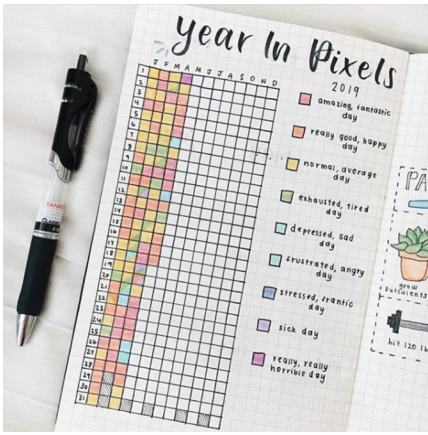 Year In Pixels
2019
J F M A M J J A S O N D
1
2
3
4
5
6
7
8
9
10
11
12
13
14
15
16
17
18
19
20
21
22
23
24
25
26
27
28
29
30
31
amazing, fantastic
day
really good, happy
day
normal, average
day
exhausted, tired
day
depressed, sad
day
frustrated, angry
day
stressed, frantic
day
sick day
really, really
horrible day
PA
grow
succulents
hit 120 lb